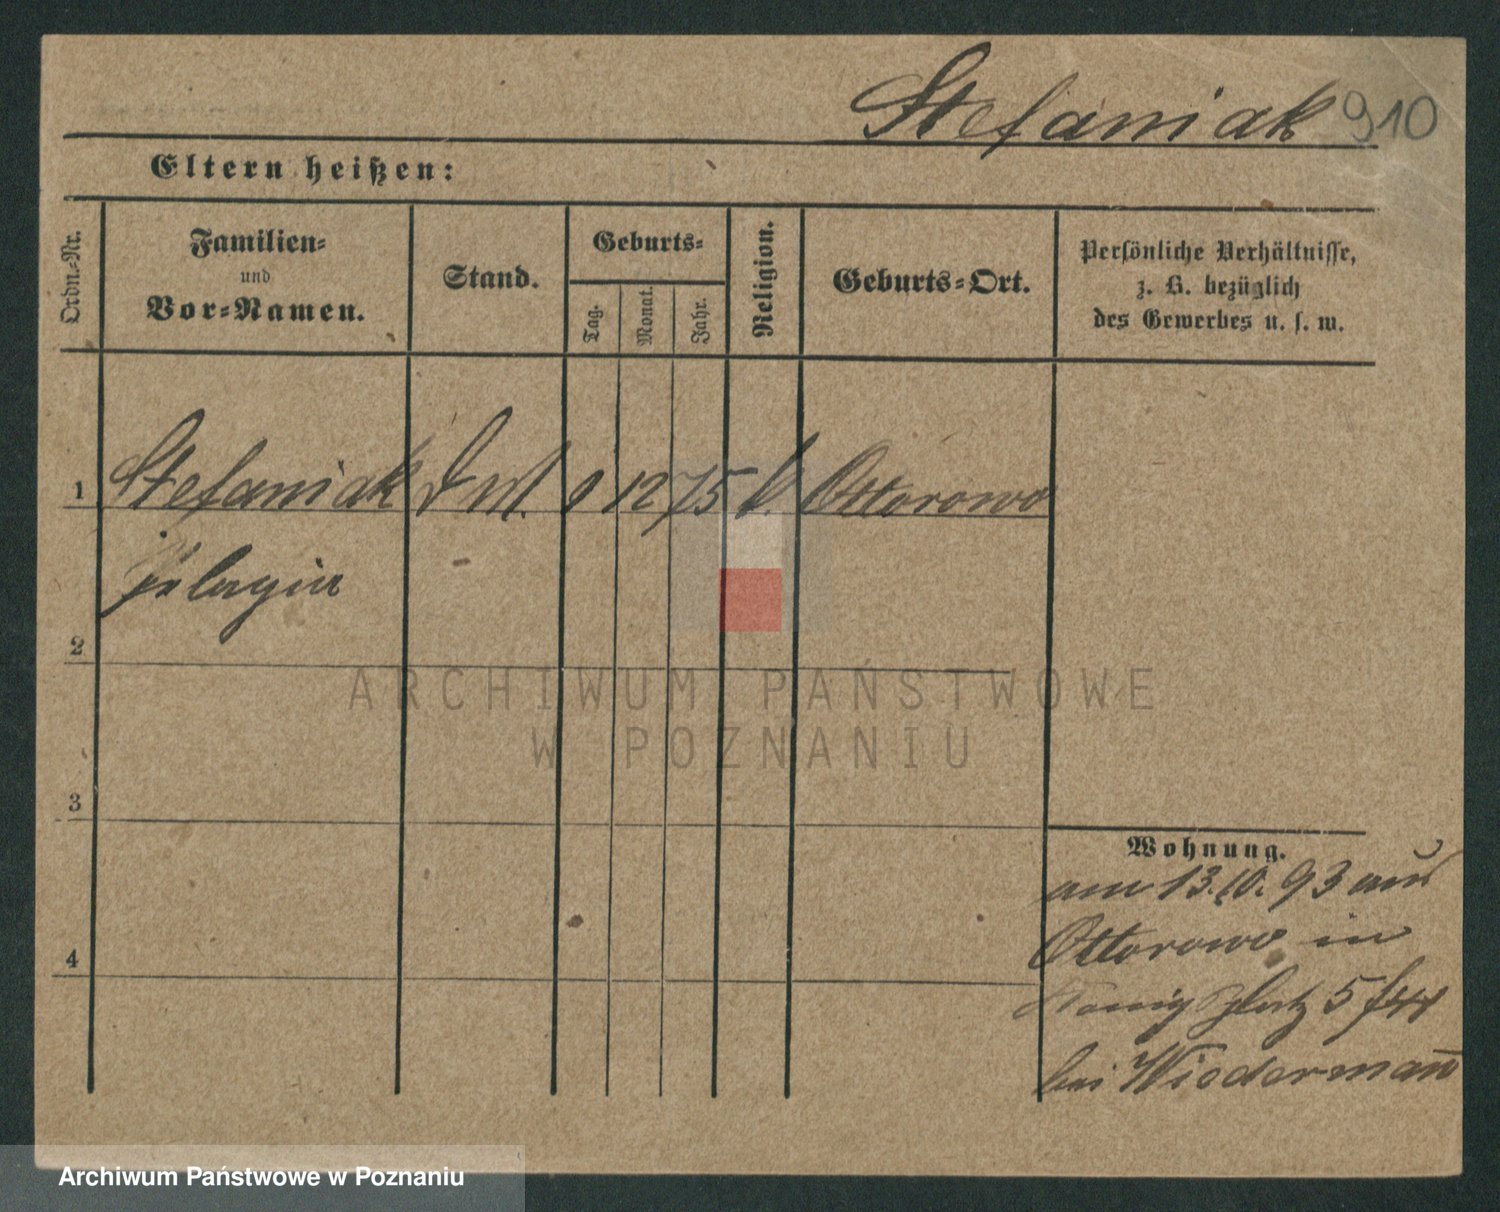 Stefaniak 910
Eltern heißen:
Ordn.-Nr.
Familien-
und
Vor-Namen.
Stand.
Geburts-
Tag.
Monat.
Jahr.
Religion.
Geburts-Ort.
Persönliche Verhältnisse,
z. B. bezüglich
des Gewerbes u. s. w.
1 Stefaniak 12 75 Ottorowo
Pelagia
2
3
4
Wohnung.
am 13.10.93 aus
Ottorowo in
Königsplatz 5
bei Wiedermañ
ARCHIWUM PAŃSTWOWE
W POZNANIU
Archiwum Państwowe w Poznaniu